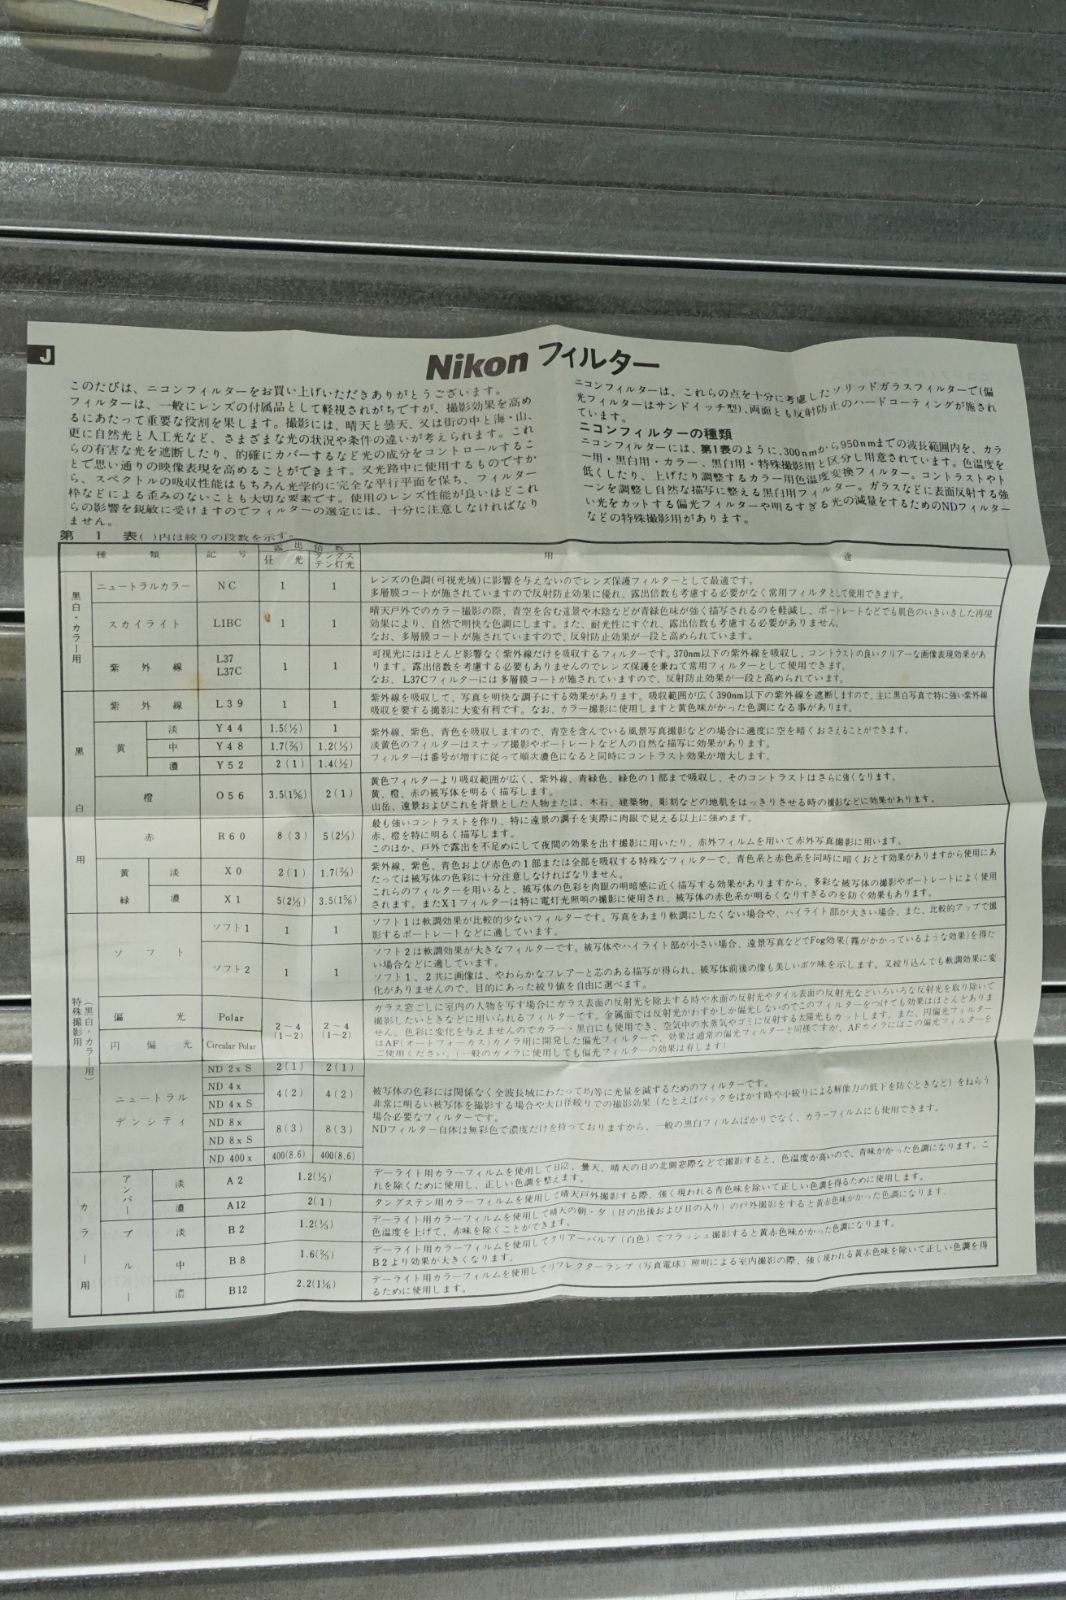 J
Nikon フィルター
このたびは、ニコンフィルターをお買い上げいただきありがとうございます。
フィルターは、一般にレンズの付属品として軽視されがちですが、撮影効果を高め
るにあたって重要な役割を果します。撮影には、晴天と曇天、又は街の中と海・山、
更に自然光と人工光など、さまざまな光の状況や条件の違いが考えられます。これ
らの有害な光を遮断したり、的確にカバーするなど光の成分をコントロールするこ
とで思い通りの映像表現を高めることができます。又光路中に使用するものですか
ら、スペクトルの吸収性能はもちろん光学的に完全な平行平面を保ち、フィルター
枠などによる歪みのないことも大切な要素です。使用のレンズ性能が良いほどこれ
らの影響を鋭敏に受けますのでフィルターの選定には、十分に注意しなければなり
ません。
ニコンフィルターは、これらの点を十分に考慮したソリッドガラスフィルターで(偏
光フィルターはサンドイッチ型)、両面とも反射防止のハードコーティングが施され
ています。
ニコンフィルターの種類
ニコンフィルターには、第1表のように、300nmから950nmまでの波長範囲内を、カラ
ー用・黒白用・カラー、黒白用・特殊撮影用と区分し用意されています。色温度を
低くしたり、上げたり調整するカラー用色温度変換フィルター。コントラストやト
ーンを調整し自然な描写に整える黒白用フィルター。ガラスなどに表面反射する強
い光をカットする偏光フィルターや明るすぎる光の減量をするためのNDフィルター
などの特殊撮影用があります。
第 1 表( )内は絞りの段数を示す。
種 類 記 号 露出倍数 用 途
昼 光 タングス
テン灯光
黒白・カラー用
ニュートラルカラー NC 1 1 レンズの色調(可視光域)に影響を与えないのでレンズ保護フィルターとして最適です。
多層膜コートが施されていますので反射防止効果に優れ、露出倍数も考慮する必要がなく常用フィルタとして使用できます。
スカイライト L1BC 1 1 晴天戸外でのカラー撮影の際、青空を含む遠景や木陰などが青緑色味が強く描写されるのを軽減し、ポートレートなどでも肌色のいきいきした再現
効果により、自然で明快な色調にします。また、耐光性にすぐれ、露出倍数も考慮する必要がありません。
なお、多層膜コートが施されていますので、反射防止効果が一段と高められています。
紫 外 線 L37
L37C 1 1 可視光にはほとんど影響なく紫外線だけを吸収するフィルターです。370nm以下の紫外線を吸収し、コントラストの良いクリアーな画像表現効果があ
ります。露出倍数を考慮する必要もありませんのでレンズ保護を兼ねて常用フィルターとして使用できます。
なお、L37Cフィルターには多層膜コートが施していますので、反射防止効果が一段と高められています。
黒白用
紫 外 線 L39 1 1 紫外線を吸収して、写真を明快な調子にする効果があります。吸収範囲が広く390nm以下の紫外線を遮断しますので、主に黒白写真で特に強い紫外線
吸収を要する撮影に大変有利です。なお、カラー撮影に使用しますと黄色味がかった色調になる事があります。
黄 淡 Y44 1.5(½) 1 紫外線、紫色、青色を吸収しますので、青空を含んでいる風景写真撮影などの場合に適度に空を暗くおさえることができます。
中 Y48 1.7(⅔) 1.2(⅓) 淡黄色のフィルターはスナップ撮影やポートレートなど人の自然な描写に効果があります。
濃 Y52 2(1) 1.4(½) フィルターは番号が増すに従って順次濃色になると同時にコントラスト効果が増大します。
橙 O56 3.5(1⅚) 2(1) 黄色フィルターより吸収範囲が広く、紫外線、青緑色、緑色の1部まで吸収し、そのコントラストはさらに強くなります。
黄、橙、赤の被写体を明るく描写します。
山岳、遠景およびこれを背景とした人物または、木石、建築物、彫刻などの地肌をはっきりさせる時の撮影などに効果があります。
赤 R60 8(3) 5(2⅓) 最も強いコントラストを作り、特に遠景の調子を実際に肉眼で見える以上に強めます。
赤、橙を特に明るく描写します。
このほか、戸外で露出を不足めにして夜間の効果を出す撮影に用いたり、赤外フィルムを用いて赤外写真撮影に用います。
黄緑 淡 X0 2(1) 1.7(⅔) 紫外線、紫色、青色および赤色の1部または全部を吸収する特殊なフィルターで、青色系と赤色系を同時に暗くおとす効果がありますから使用にあ
たっては被写体の色彩に十分注意しなければなりません。
濃 X1 5(2⅓) 3.5(1⅚) これらのフィルターを用いると、被写体の色彩を肉眼の明暗感に近く描写する効果がありますから、多彩な被写体の撮影やポートレートによく使用
されます。またX1フィルターは特に電灯光照明の撮影に使用され、被写体の赤色系が明るくなりすぎるのを防ぐ効果もあります。
特殊撮影用 (黒白・カラー用)
ソフト ソフト1 1 1 ソフト1は軟調効果が比較的少ないフィルターです。写真をあまり軟調にしたくない場合や、ハイライト部が大きい場合、また、比較的アップで撮
影するポートレートなどに適しています。
ソフト2 1 1 ソフト2は軟調効果が大きなフィルターです。被写体やハイライト部が小さい場合、遠景写真などでFog効果(霧がかかっているような効果)を得た
い場合などに適しています。
ソフト1、2共に画像は、やわらかなフレアーと芯のある描写が得られ、被写体前後の像も美しいボケ味を示します。又絞り込んでも軟調効果に変
化がありませんので、目的にあった絞り値を自由に選べます。
偏 光 Polar 2～4
(1～2) 2～4
(1～2) ガラス窓ごしに室内の人物を写す場合にガラス表面の反射光を除去する時や水面の反射光やタイル表面の反射光などいろいろな反射光を取り除いて
撮影したいときなどに用いられるフィルターです。金属面では反射光がわずかしか偏光しないのでこのフィルターをつけても効果はほとんどあり
円 偏 光 Circular Polar ません。色彩に変化を与えませんのでカラー・黒白にも使用でき、空気中の水蒸気やゴミに反射する太陽光もカットします。また、円偏光フィルター
はAF(オートフォーカス)カメラ用に開発した偏光フィルターで、効果は通常の偏光フィルターと同様ですが、AFカメラにはこの偏光フィルターを
ご使用ください。(一般のカメラに使用しても偏光フィルターの効果は有します)
ニュートラルデンシティ ND 2x S 2(1) 2(1)
ND 4x 4(2) 4(2) 被写体の色彩には関係なく全波長域にわたって均等に光量を減ずるためのフィルターです。
ND 4x S 非常に明るい被写体を撮影する場合や大口径絞りでの撮影効果(たとえばバックをぼかす時や小絞りによる解像力の低下を防ぐときなど)をねらう
ND 8x 8(3) 8(3) 場合必要なフィルターです。
ND 8x S NDフィルター自体は無彩色で濃度だけを持っておりますから、一般の黒白フィルムばかりでなく、カラーフィルムにも使用できます。
ND 400x 400(8.6) 400(8.6)
カラー用
アンバー 淡 A2 1.2(⅓) デーライト用カラーフィルムを使用して日陰、曇天、晴天の日の北側窓際などで撮影すると、色温度が高いので、青味がかった色調になります。こ
れを除くために使用し、正しい色調を整えます。
濃 A12 2(1) タングステン用カラーフィルムを使用して晴天戸外撮影する際、強く現われる青色味を除いて正しい色調を得るために使用します。
ブルー 淡 B2 1.2(⅓) デーライト用カラーフィルムを使用して晴天の朝・夕(日の出後および日の入り)の戸外撮影をすると黄赤色味がかった色調になります。
色温度を上げて、赤味を除くことができます。
中 B8 1.6(⅔) デーライト用カラーフィルムを使用してクリアーバルブ(白色)でフラッシュ撮影すると黄赤色味がかった色調になります。
B2より効果が大きくなります。
濃 B12 2.2(1⅙) デーライト用カラーフィルムを使用してリフレクターランプ(写真電球)照明による室内撮影の際、強く現われる黄赤色味を除いて正しい色調を得
るために使用します。